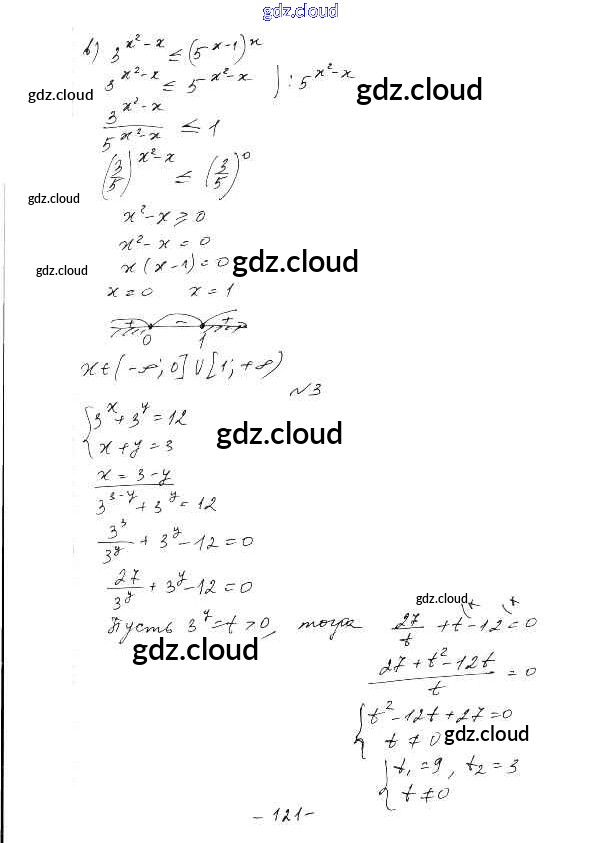 gdz.cloud
в) 3^(x²-x) ≤ (5^(x-1))^x
3^(x²-x) ≤ 5^(x²-x) ) : 5^(x²-x)
gdz.cloud gdz.cloud
3^(x²-x) / 5^(x²-x) ≤ 1
(3/5)^(x²-x) ≤ (3/5)^0
gdz.cloud
x²-x ≥ 0
x²-x = 0
x(x-1) = 0 gdz.cloud
gdz.cloud
x = 0 x = 1
+ - +
0 1
x ∈ (-∞; 0] ∪ [1; +∞)
№3
{ 3^x + 3^y = 12
x + y = 3 gdz.cloud
x = 3 - y
3^(3-y) + 3^y = 12
3³/3^y + 3^y - 12 = 0
27/3^y + 3^y - 12 = 0
gdz.cloud
Пусть 3^y = t > 0, тогда 27/t + t - 12 = 0
gdz.cloud
(27 + t² - 12t) / t = 0
{ t² - 12t + 27 = 0
t ≠ 0 gdz.cloud
{ t₁ = 9, t₂ = 3
t ≠ 0
- 121 -